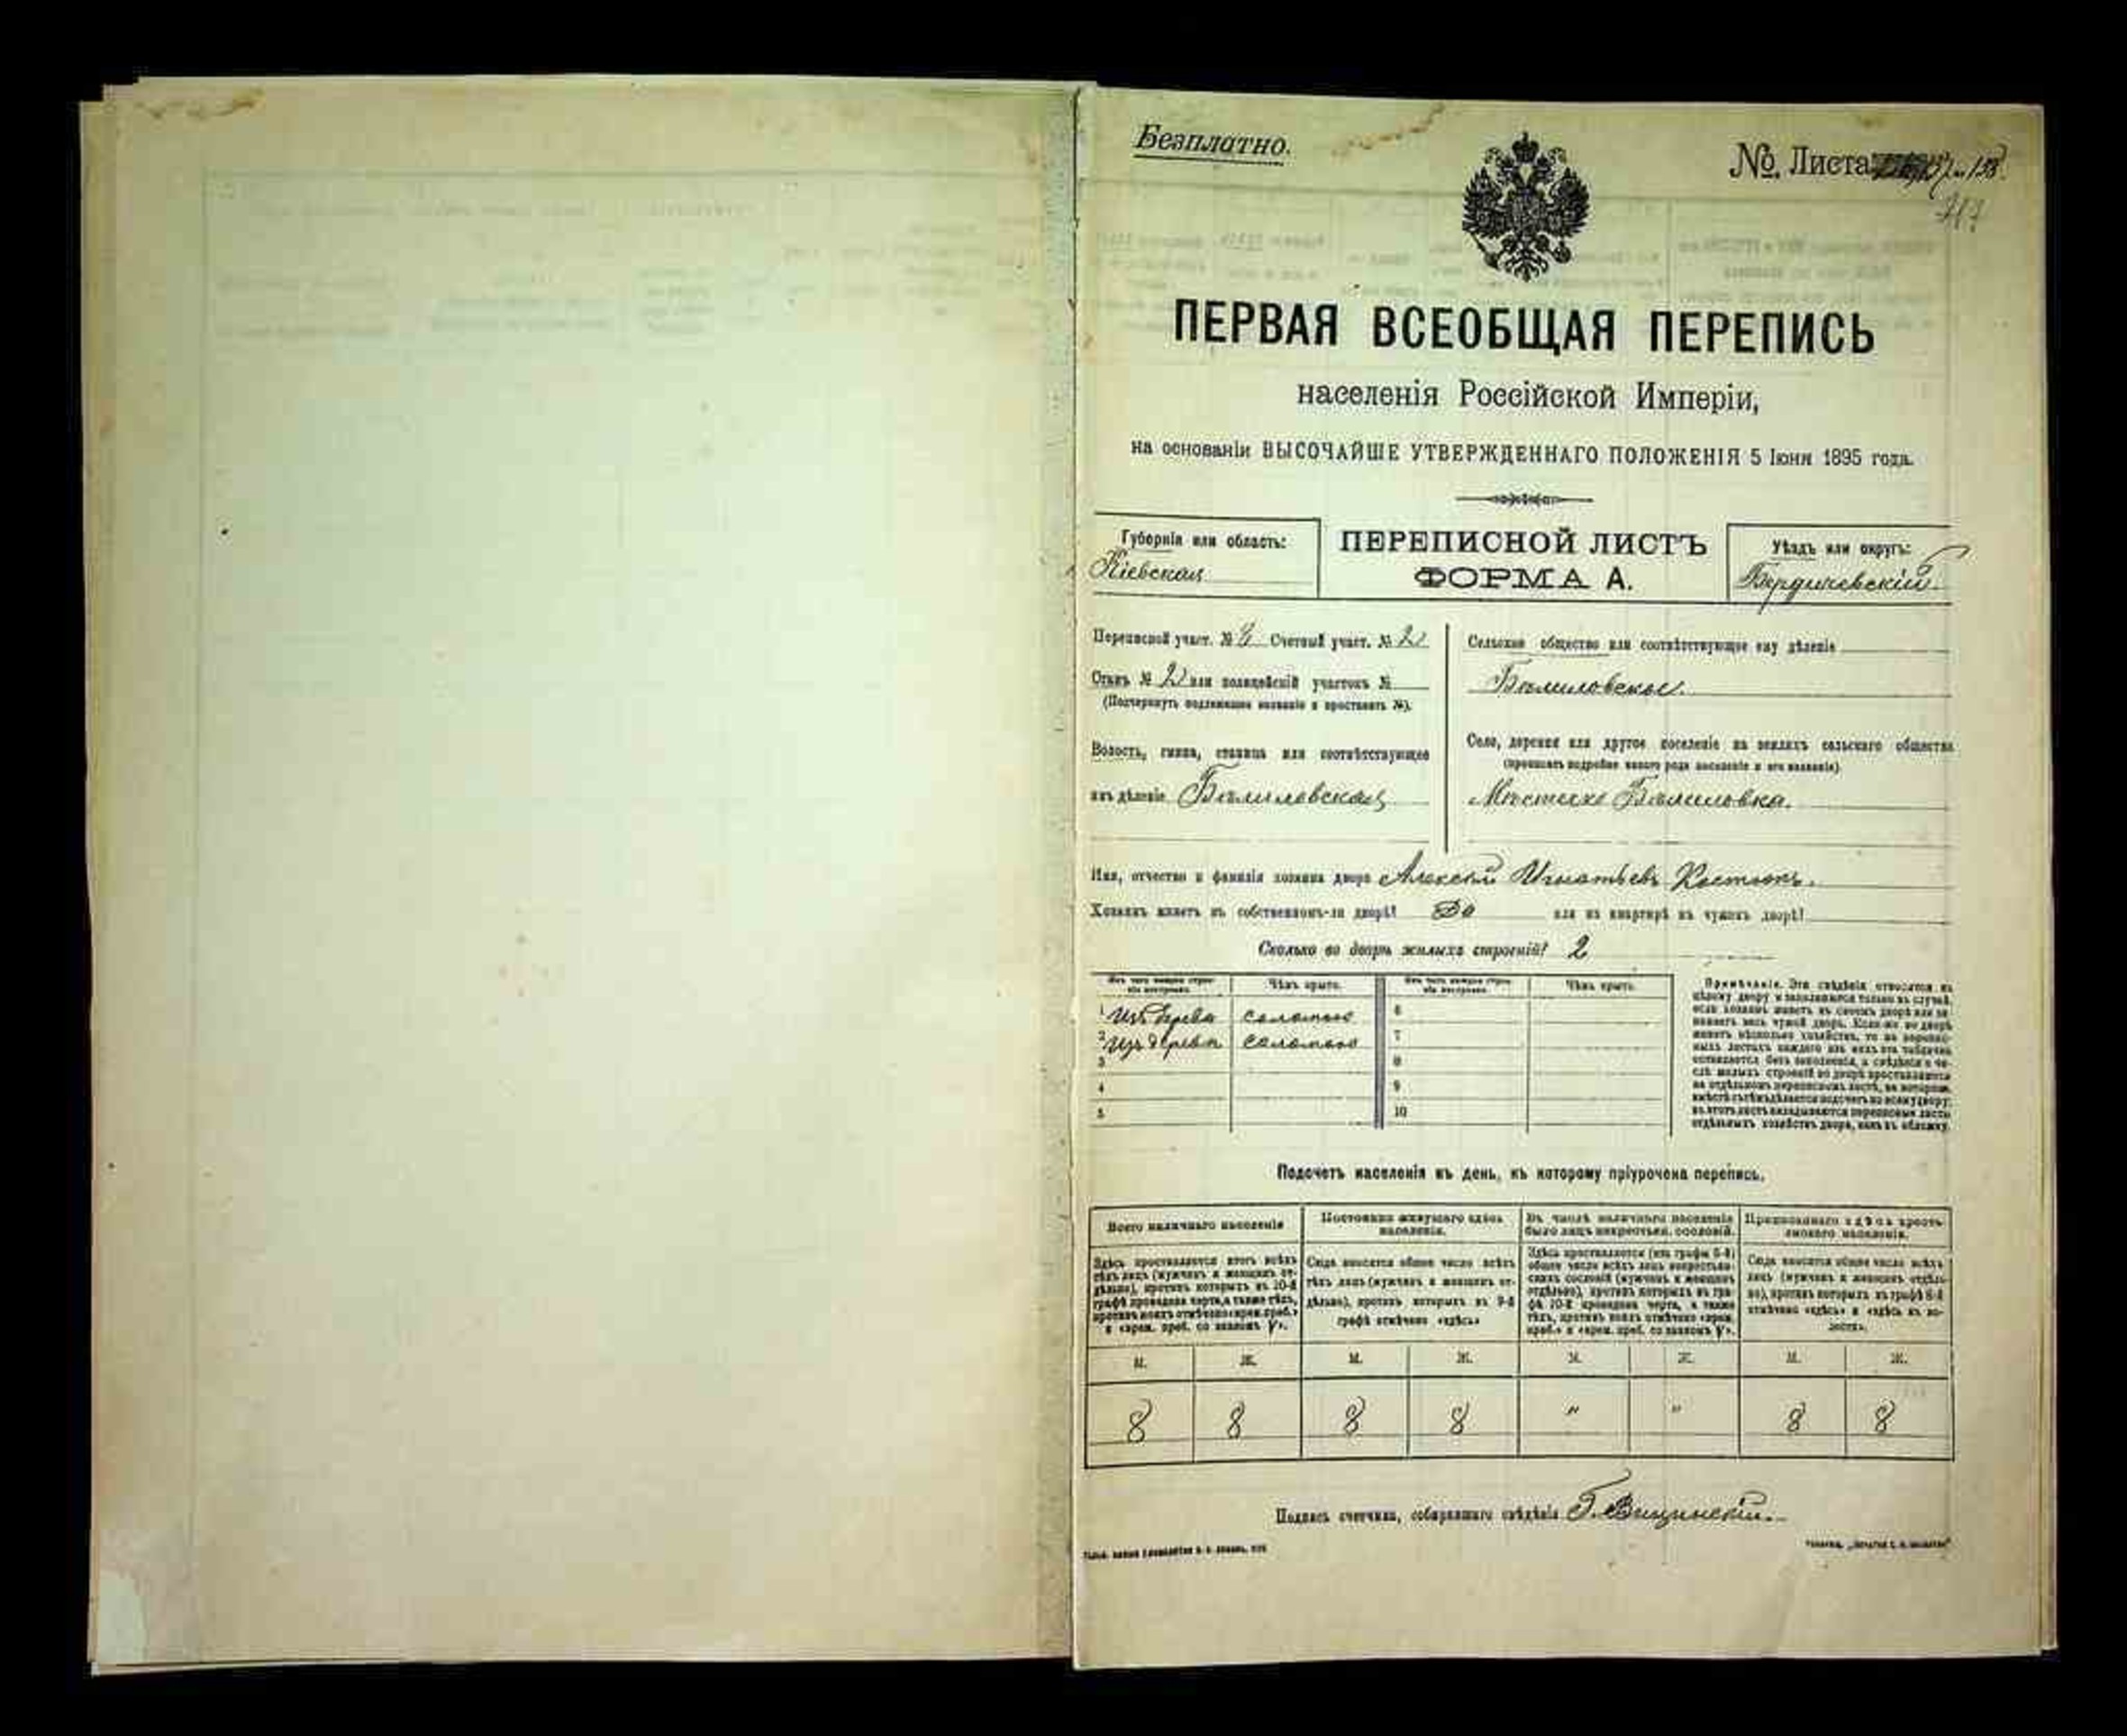 Безплатно.
№ Листа 137 и 138.
417
ПЕРВАЯ ВСЕОБЩАЯ ПЕРЕПИСЬ
населенія Россійской Имперіи,
на основаніи ВЫСОЧАЙШЕ УТВЕРЖДЕННАГО ПОЛОЖЕНІЯ 5 Іюня 1895 года.
Губернія или область:
Кіевская
ПЕРЕПИСНОЙ ЛИСТЪ
ФОРМА А.
Уѣздъ или округъ:
Бердичевскій.
Переписной участ. № Счетный участ. № 2
Станъ № 2 или полицейскій участокъ №
(Подчеркнуть подлежащее названіе и проставить №).
Волость, гмина, станица или соотвѣтствующее
имъ дѣленіе Бѣлиловская
Сельское общество или соотвѣтствующее ему дѣленіе
Бѣлиловское.
Село, деревня или другое поселеніе на земляхъ сельскаго общества
(прописать подробно какого рода поселеніе и его названіе).
Мѣстечко Бѣлиловка.
Имя, отчество и фамилія хозяина двора Алексѣй Игнатьевъ Костюкъ.
Хозяинъ живетъ въ собственномъ-ли дворѣ? Да или на квартирѣ въ чужомъ дворѣ?
Сколько во дворѣ жилыхъ строеній? 2
Изъ чего каждое строеніе построено.
Чѣмъ крыто.
Изъ чего каждое строеніе построено.
Чѣмъ крыто.
1 Изъ дерева соломою 6
2 Изъ дерева соломою 7
3 8
4 9
5 10
Примѣчаніе. Эти свѣдѣнія относятся къ
цѣлому двору и заполняются только въ случаѣ,
если хозяинъ живетъ въ своемъ дворѣ или занимаетъ
весь чужой дворъ. Если-же во дворѣ
живетъ нѣсколько хозяйствъ, то на переписныхъ
листахъ каждаго изъ нихъ эта табличка
оставляется безъ заполненія, а свѣдѣнія о числѣ
жилыхъ строеній во дворѣ проставляются
на отдѣльномъ переписномъ листѣ, на которомъ
вмѣстѣ съ тѣмъ дѣлается подсчетъ по всему двору;
въ этотъ листъ вкладываются переписные листы
отдѣльныхъ хозяйствъ двора, какъ въ обложку.
Подсчетъ населенія въ день, къ которому пріурочена перепись.
Всего наличнаго населенія
Здѣсь проставляется итогъ всѣхъ
тѣхъ лицъ (мужчинъ и женщинъ отдѣльно),
противъ которыхъ въ 10-й
графѣ проведена черта, а также тѣхъ,
противъ коихъ отмѣчено «врем. преб.»
и «врем. преб. со знакомъ V».
Постоянно живущаго здѣсь
населенія.
Сюда вносится общее число всѣхъ
тѣхъ лицъ (мужчинъ и женщинъ отдѣльно),
противъ которыхъ въ 9-й
графѣ отмѣчено «здѣсь»
Въ числѣ наличнаго населенія
было лицъ некрестьян. сословій.
Здѣсь проставляется (изъ графы 5-й)
общее число всѣхъ лицъ некрестьянскихъ
сословій (мужчинъ и женщинъ
отдѣльно), противъ которыхъ въ графѣ
10-й проведена черта, а также
тѣхъ, противъ коихъ отмѣчено «врем.
преб.» и «врем. преб. со знакомъ V».
Приписаннаго здѣсь крестьянскаго
населенія.
Сюда вносится общее число всѣхъ
лицъ (мужчинъ и женщинъ отдѣльно),
противъ которыхъ въ графѣ 8-й
отмѣчено «здѣсь» и «здѣсь въ волости».
М. Ж. М. Ж. М. Ж. М. Ж.
8 8 8 8 " " 8 8
Подпись счетчика, собиравшаго свѣдѣнія Г. Вицинскій.